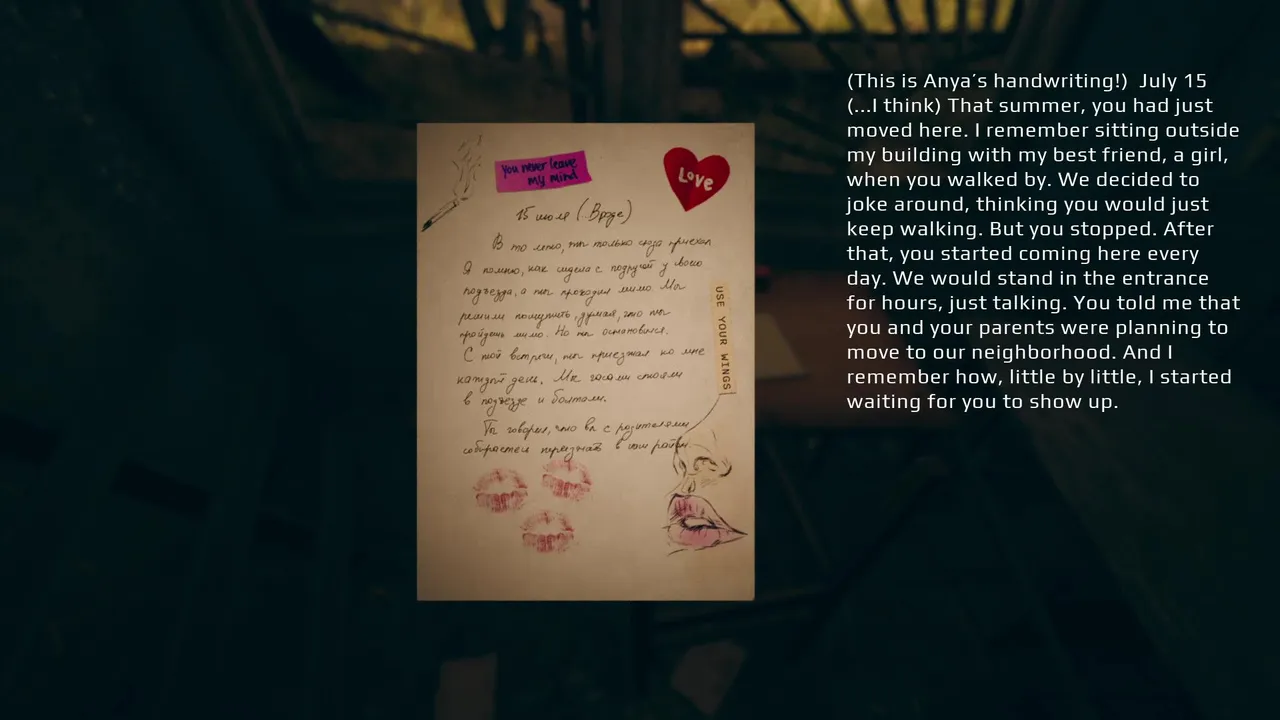 you never leave
my mind
Love
15 июля (..Вроде)
В то лето, ты только сюда приехал
Я помню, как сидела с подругой у своего
подъезда, а ты проходил мимо. Мы
решили пошутить, думая, что ты
пройдёшь мимо. Но ты остановился.
С той встречи, ты приезжал ко мне
каждый день. Мы часами стояли
в подъезде и болтали.
Ты говорил, что вы с родителями
собираетесь переезжать в наш район.
USE YOUR WINGS
(This is Anya’s handwriting!)  July 15
(...I think) That summer, you had just
moved here. I remember sitting outside
my building with my best friend, a girl,
when you walked by. We decided to
joke around, thinking you would just
keep walking. But you stopped. After
that, you started coming here every
day. We would stand in the entrance
for hours, just talking. You told me that
you and your parents were planning to
move to our neighborhood. And I
remember how, little by little, I started
waiting for you to show up.